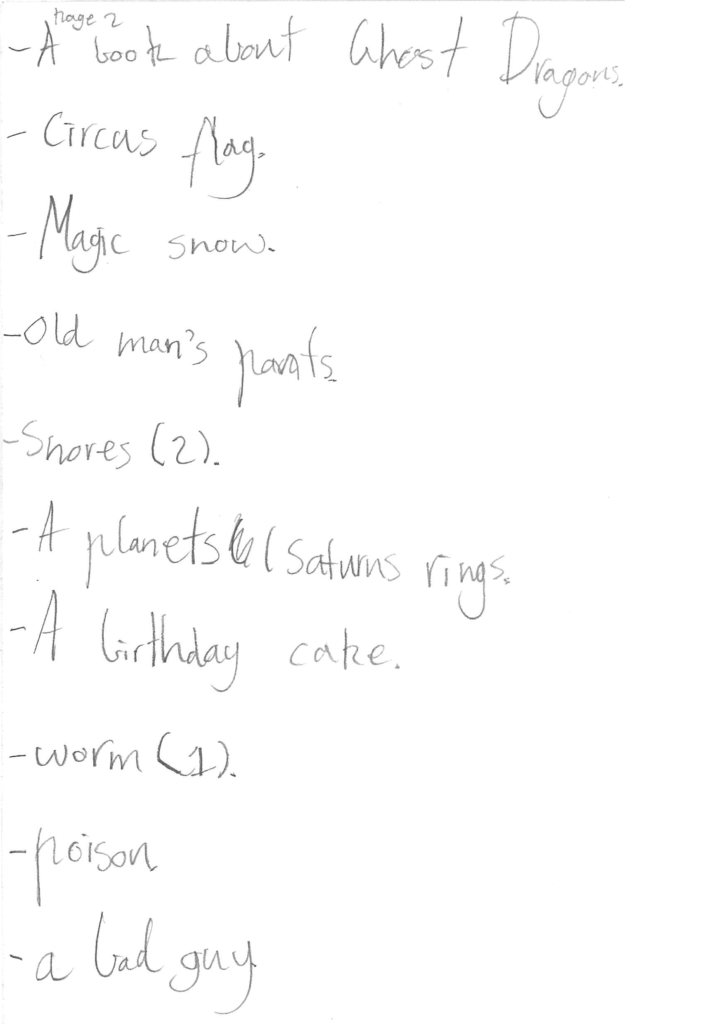 page 2
- A book about Ghost Dragons.
- Circus flag.
- Magic snow.
- Old man's pants.
- Snores (2).
- A planets / Saturns rings.
- A birthday cake.
- worm (1).
- poison
- a bad guy